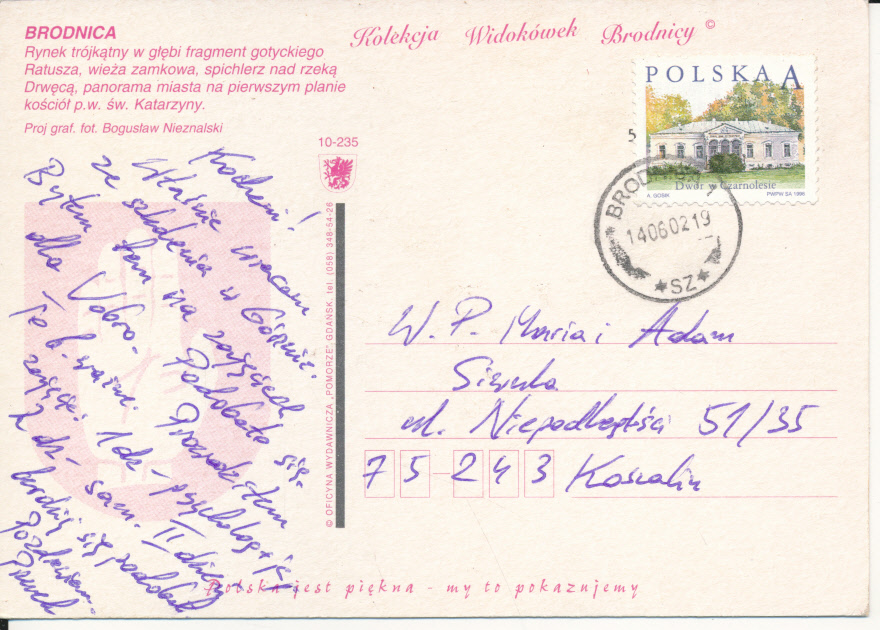 BRODNICA
Rynek trójkątny w głębi fragment gotyckiego
Ratusza, wieża zamkowa, spichlerz nad rzeką
Drwęcą, panorama miasta na pierwszym planie
kościół p.w. św. Katarzyny.
Proj graf. fot. Bogusław Nieznalski
Kolekcja Widokówek Brodnicy ©
10-235
POLSKA A
5
Dwór w Czarnolesie
PWPW SA 1998
BROD
14060219
SZ
© OFICYNA WYDAWNICZA „POMORZE", GDAŃSK, tel. (058) 348-54-26
Kochani!
Właśnie wracam
ze szkolenia w
Byłem tam na zajęciach
dla Podobało się.
To b. ważne. Prowadziłem
zajęcia. 1 dz- psycholog i ja
2 dz- sam. II dzień
bardziej się podobał
Pozdrawiam.
W. P. Maria i Adam
ul. Niepodległości 51/35
75-243 Koszalin
Polska jest piękna - my to pokazujemy